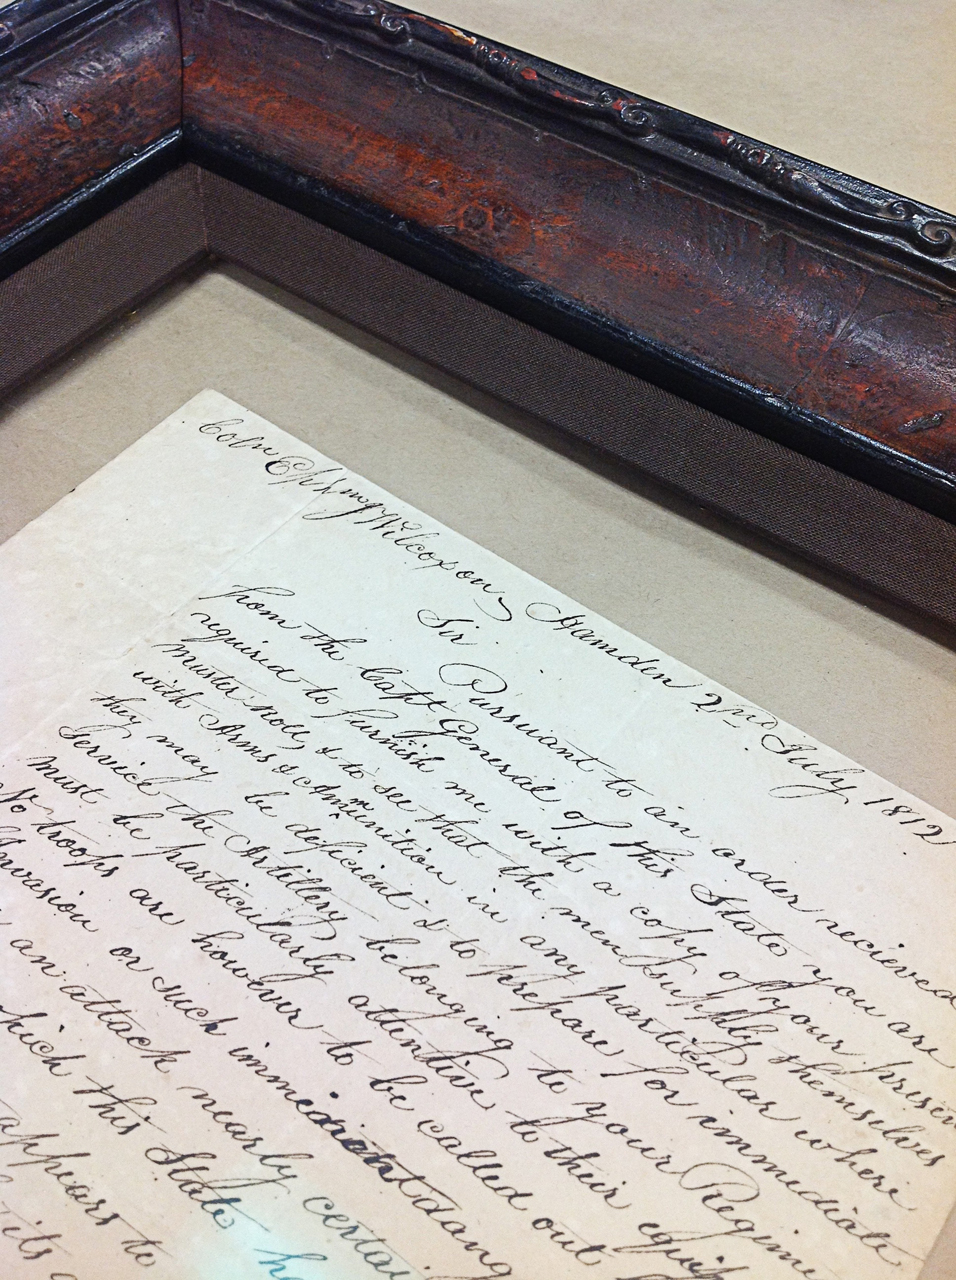 Coln Ephrm Wilcoxon, Hamden 2nd July 1812
Sir
Pursuant to an order recieved
from the Capt General of this State you are
required to furnish me with a copy of your presen
muster role, & to see that the men supply themselves
with Arms & Ammunition in any particular where
they may be deficient & to prepare for immediate
Service the Artillery belonging to your Regime
must be particularly attentive to their equip
No troops are however to be called out
Invasion or such immediant dang
an attack nearly certai
which this State h
appears to
its